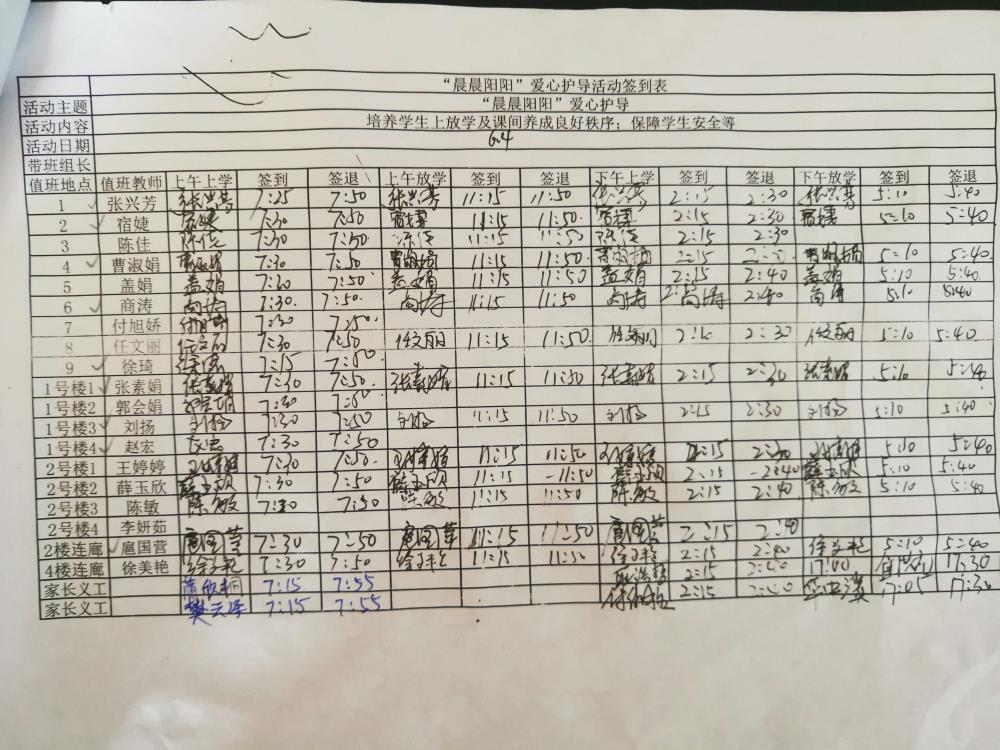 “晨晨阳阳”爱心护导活动签到表
活动主题 “晨晨阳阳”爱心护导
活动内容 培养学生上放学及课间养成良好秩序；保障学生安全等
活动日期 6.4
带班组长
值班地点 值班教师 上午上学 签到 签退 上午放学 签到 签退 下午上学 签到 签退 下午放学 签到 签退
1 张兴芳 张兴芳 7:25 7:50 张兴芳 11:15 11:50 张兴芳 2:15 2:30 张兴芳 5:10 5:40
2 宿婕 宿婕 7:30 7:50 宿婕 11:15 11:50 宿婕 2:15 2:30 宿婕 5:10 5:40
3 陈佳 陈佳 7:30 7:50 陈佳 11:15 11:50 陈佳 2:15 2:30
4 曹淑娟 曹淑娟 7:30 7:50 曹淑娟 11:15 11:50 曹淑娟 2:15 曹淑娟 5:10 5:40
5 盖娟 盖娟 7:30 7:50 盖娟 11:15 11:50 盖娟 2:15 2:40 盖娟 5:10 5:40
6 商涛 商涛 7:30 7:50 商涛 11:15 11:50 商涛 2:15 商涛 2:40 商涛 5:10 5:40
7 付旭娇 付旭娇 7:30 7:50
8 任文丽 任文丽 7:30 7:50 任文丽 11:15 11:50 任文丽 2:30 任文丽 5:10 5:40
9 徐琦 徐琦 7:15 7:50
1号楼1 张素娟 张素娟 7:30 7:50 张素娟 11:15 11:50 张素娟 2:15 2:30 张素娟 5:10 5:40
1号楼2 郭会娟 郭会娟 7:30 7:50
1号楼3 刘扬 刘扬 7:30 7:50 刘扬 11:15 11:50 刘扬 2:15 2:30 刘扬 5:10 5:40
1号楼4 赵宏 7:30 7:50 11:15 11:50 2:15 2:30 5:10 5:40
2号楼1 王婷婷 7:30 7:50 薛玉欣 11:15 11:50 薛玉欣 2:15 2:40 薛玉欣 5:10 5:40
2号楼2 薛玉欣 薛玉欣 7:30 7:50 陈敏 11:15 11:50 陈敏 2:15 2:40 陈敏 5:10 5:40
2号楼3 陈敏 陈敏 7:30 7:50
2号楼4 李妍茹
2楼连廊 扈国营 扈国营 7:30 7:50 扈国营 11:15 11:50 扈国营 2:15 2:40
4楼连廊 徐美艳 徐美艳 7:30 7:50 徐美艳 11:15 11:50 徐美艳 2:15 2:40 徐美艳 5:10 5:40
家长义工 7:15 7:55 2:15 17:00 17:30
家长义工 7:15 7:55 2:15 17:05 17:30